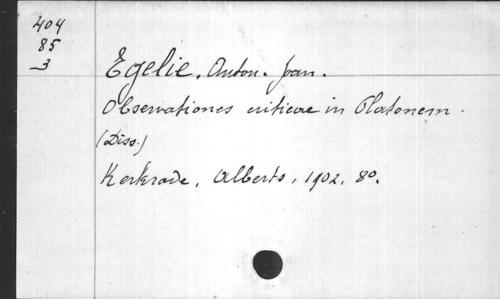 404
85
3
Egelie, Anton. Joan.
Observationes criticae in Platonem.
(Diss.)
Kerkrade, Alberts, 1902. 8o.